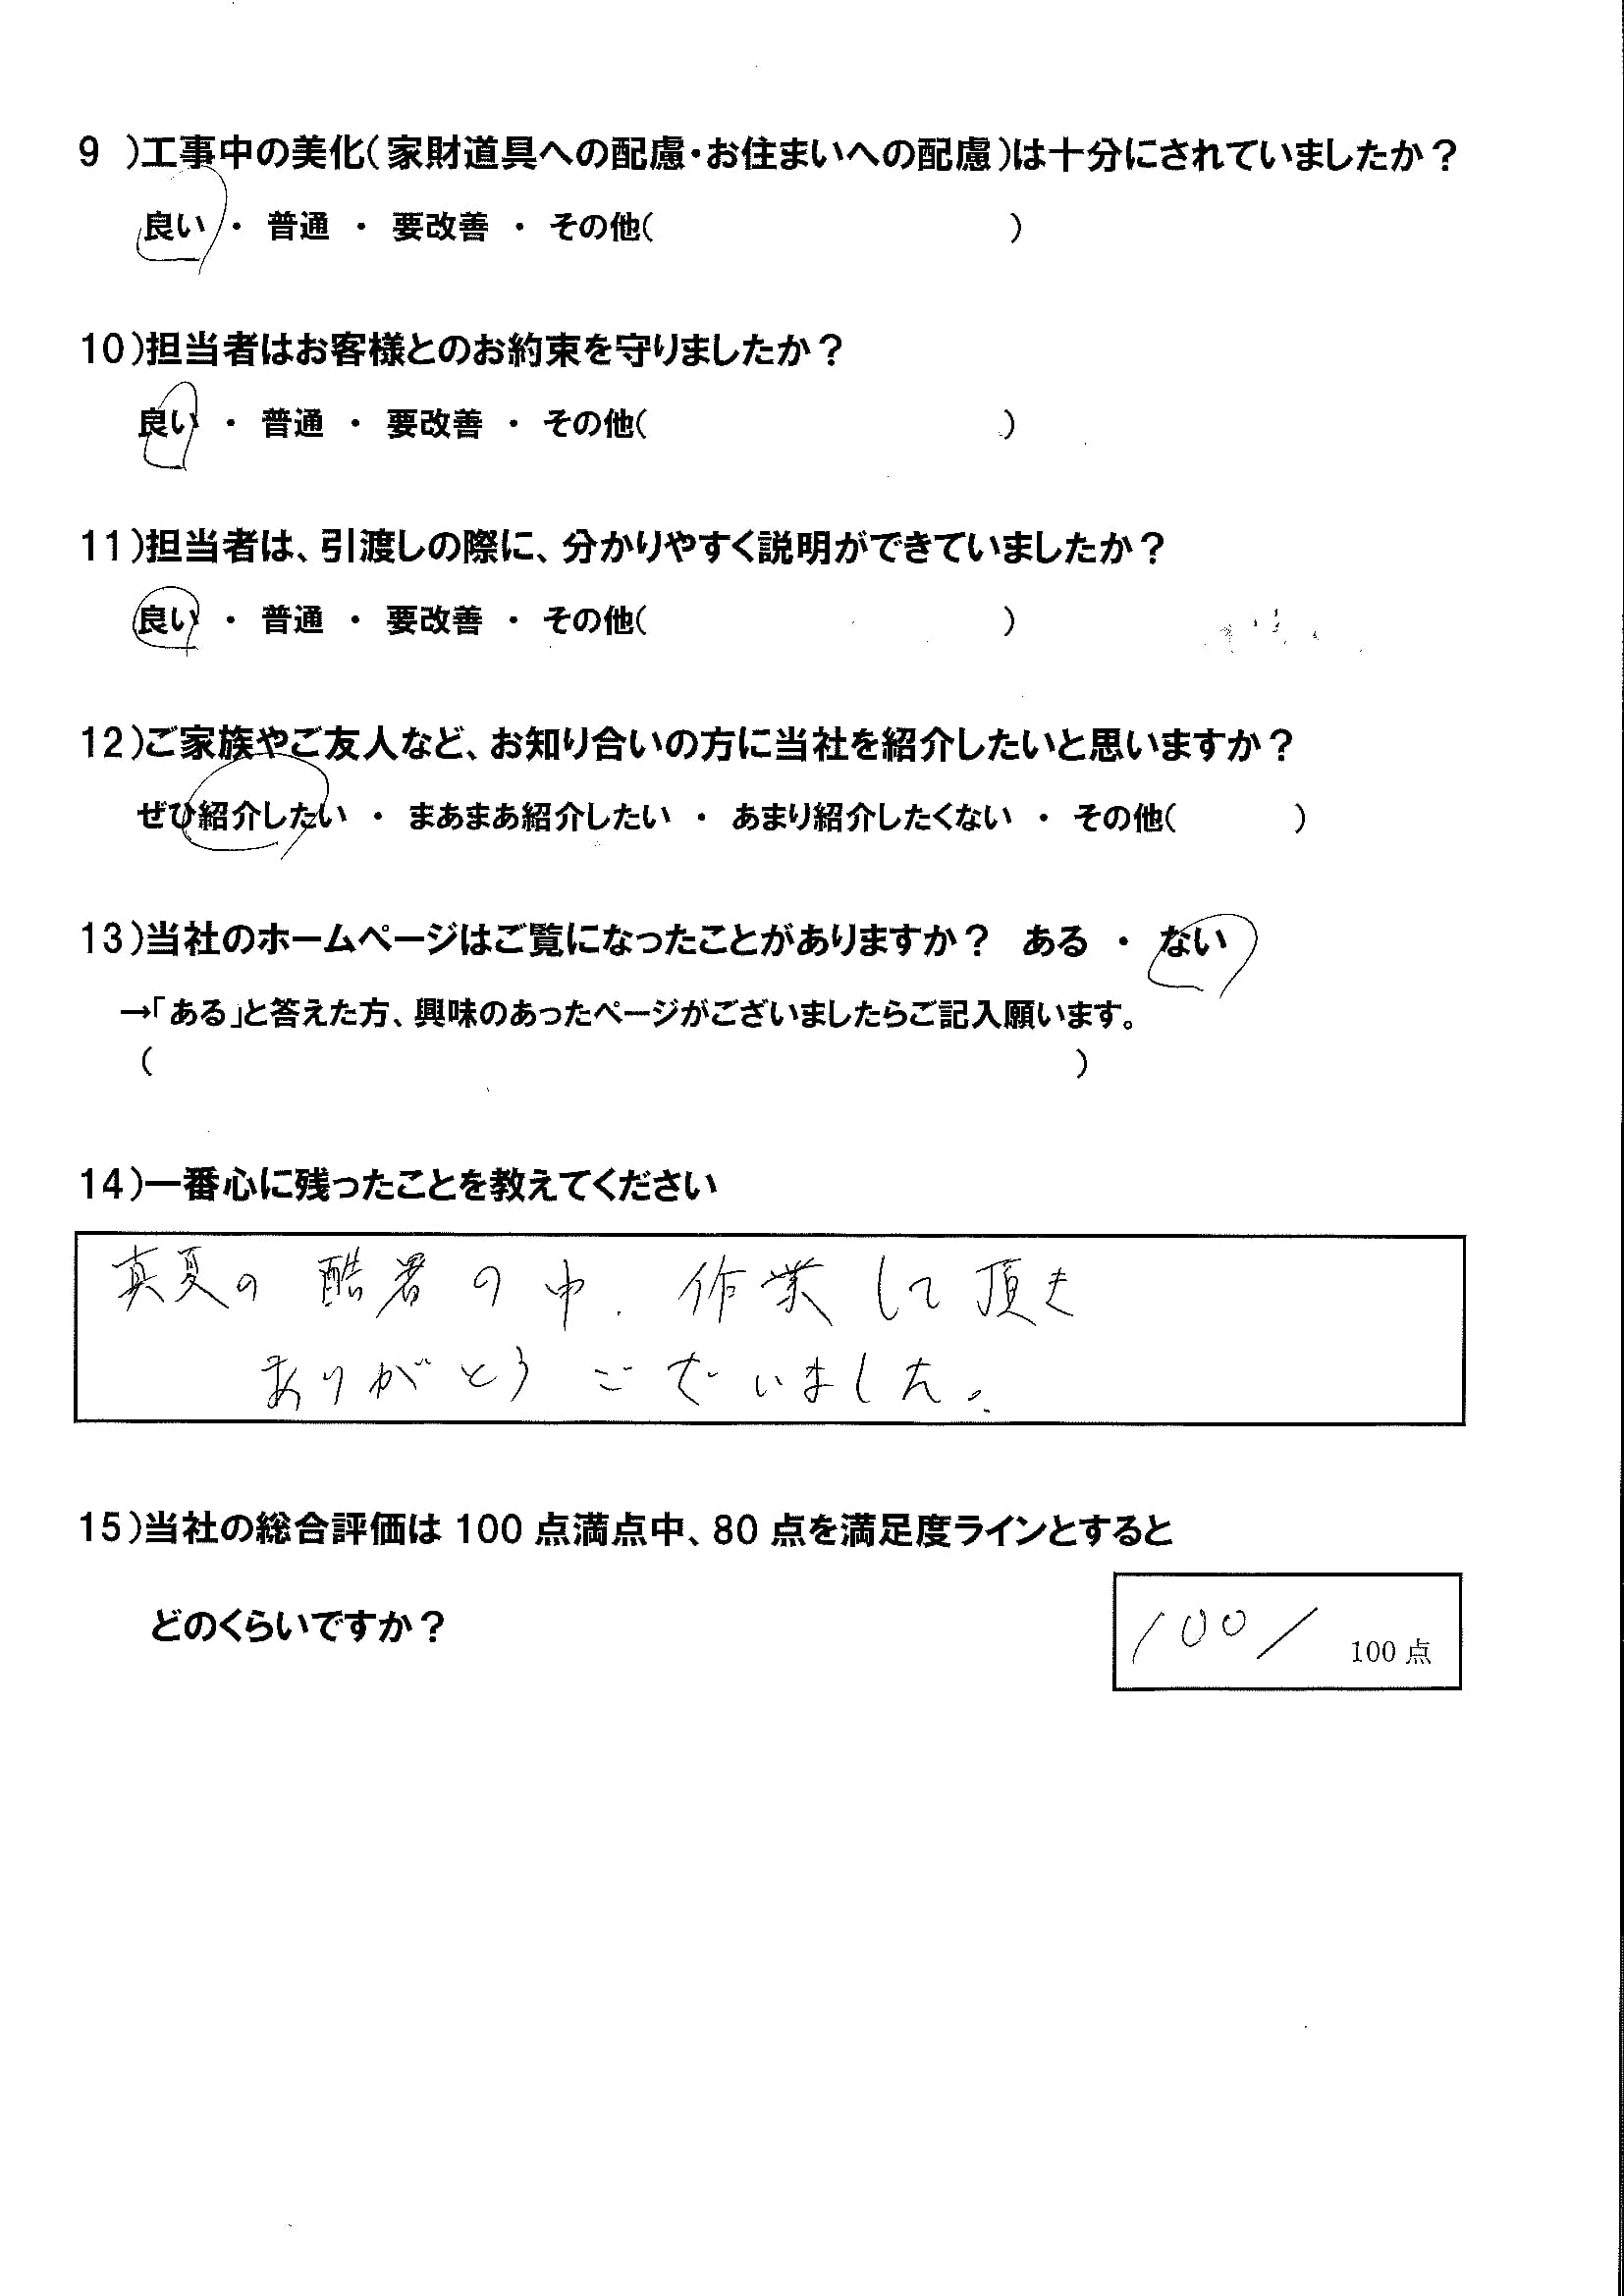 9 )工事中の美化(家財道具への配慮・お住まいへの配慮)は十分にされていましたか?
良い ・ 普通 ・ 要改善 ・ その他( )
10)担当者はお客様とのお約束を守りましたか?
良い ・ 普通 ・ 要改善 ・ その他( )
11)担当者は、引渡しの際に、分かりやすく説明ができていましたか?
良い ・ 普通 ・ 要改善 ・ その他( )
12)ご家族やご友人など、お知り合いの方に当社を紹介したいと思いますか?
ぜひ紹介したい ・ まあまあ紹介したい ・ あまり紹介したくない ・ その他( )
13)当社のホームページはご覧になったことがありますか? ある ・ ない
→「ある」と答えた方、興味のあったページがございましたらご記入願います。
( )
14)一番心に残ったことを教えてください
真夏の酷署の中、作業して頂き
ありがとうございました。
15)当社の総合評価は 100 点満点中、80 点を満足度ラインとすると
どのくらいですか?
100/ 100 点